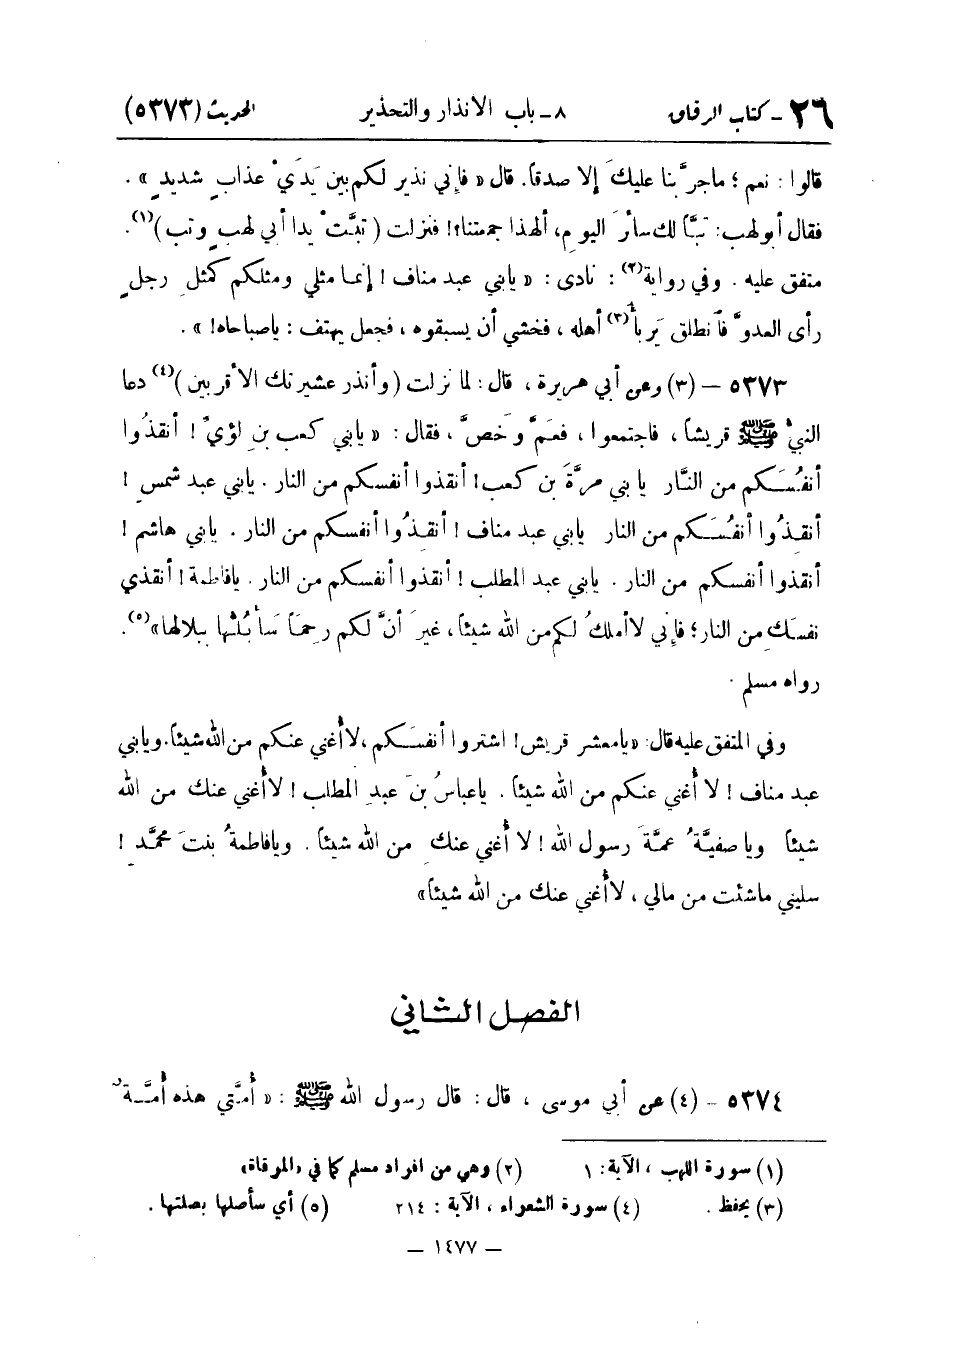 ٢٦ - كتاب الرقاق ٨ - باب الانذار والتحذير الحديث (٥٣٧٣)
قالوا : نعم ؛ ما جرَّبنا عليكَ إلا صدقاً. قال « فإني نذير لكم بين يَدَيْ عذابٍ شديدٍ » .
فقال أبو لهب: تبًّا لك سائرَ اليوم، ألهذا جمعتنا؟! فنزلت ( تبَّتْ يدا أبي لهبٍ وتب )(١).
متفق عليه . وفي رواية(٢) : نادى : « يا بني عبد مناف ! إنما مثلي ومثلكم كمثلِ رجلٍ
رأى العدوَّ فانطلق يَربأُ(٣) أهله ، فخشي أن يسبقوه ، فجعل يهتف : يا صباحاه! » .
٥٣٧٣ – (٣) وعن أبي هريرة ، قال : لما نزلت ( وأنذر عشيرتك الأقربين )(٤) دعا
النبيُّ ﷺ قريشاً ، فاجتمعوا ، فعَمَّ وخَصَّ ، فقال : « يا بني كعب بنِ لؤيّ ! أنقذُوا
أنفُسَكم من النَّار يا بني مرَّةَ بن كعب! أنقذوا أنفسكم من النار . يابني عبد شمسٍ !
أنقِذُوا أنفُسَكم من النار يابني عبد مناف ! أنقِذُوا أنفسكم من النار . يابني هاشم !
أنقذوا أنفسكم من النار . يابني عبد المطلب ! أنقذوا أنفسكم من النار . يافاطمة ! أنقذي
نفسَكِ من النار؛ فإني لا أملكُ لكم من الله شيئاً ، غيرَ أنَّ لكم رحِمَاً سَأبُلُّها ببلالها»(٥).
رواه مسلم .
وفي المتفق عليه قال: «يا معشر قريش! اشتروا أنفسَكم، لا أُغني عنكم من الله شيئاً. ويابني
عبد مناف ! لا أُغني عنكم من الله شيئاً . ياعباسُ بنَ عبدِ المطلب ! لا أُغني عنك من الله
شيئاً ويا صفيَّةُ عمَّةَ رسول الله ! لا أُغني عنكِ من الله شيئاً . ويافاطمةُ بنتَ محمَّدٍ !
سليني ماشئت من مالي ، لا أُغني عنك من الله شيئاً»
الفصل الثاني
٥٣٧٤ – (٤) عن أبي موسى ، قال : قال رسول الله ﷺ : « أمَّتي هذه أُمَّةٌ
(١) سورة اللهب ، الآية: ١ (٢) وهي من افراد مسلم كما في «المرقاة»
(٣) يحفظ . (٤) سورة الشعراء ، الآية : ٢١٤ (٥) أي سأصلها بصلتها .
– ١٤٧٧ –